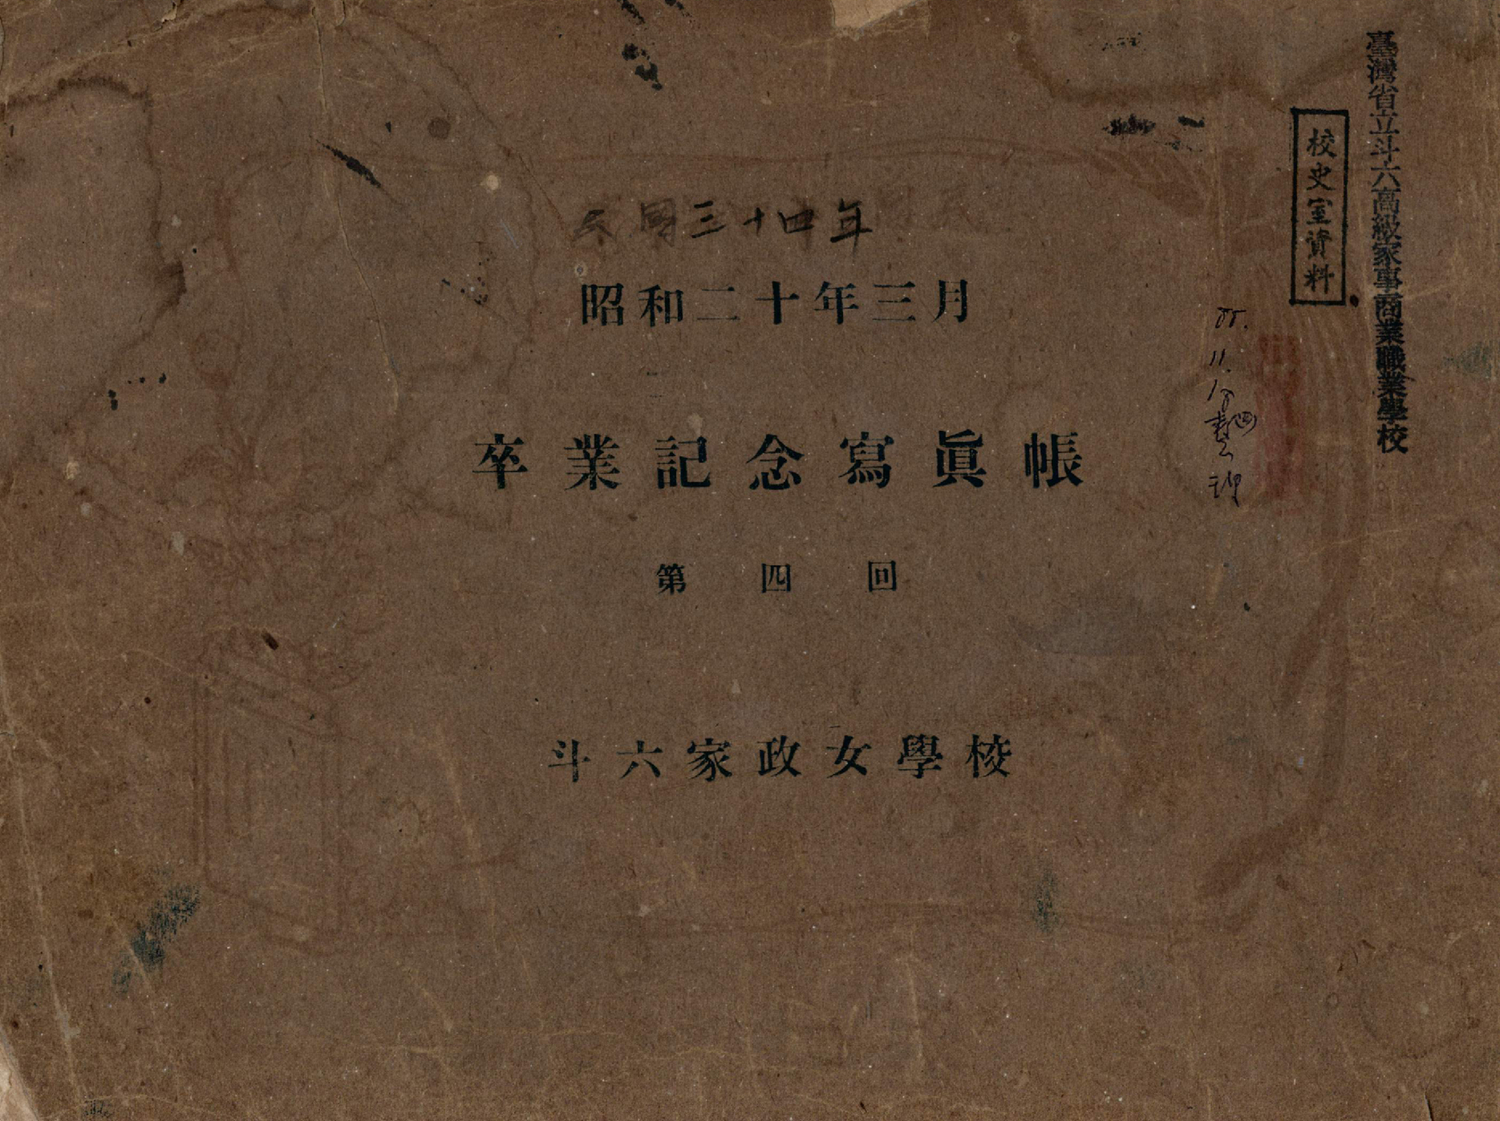 民國三十四年
昭和二十年三月
卒業記念寫眞帳
第四回
斗六家政女學校
臺灣省立斗六高級家事商業職業學校
校史室資料
88.
11.
18
整理